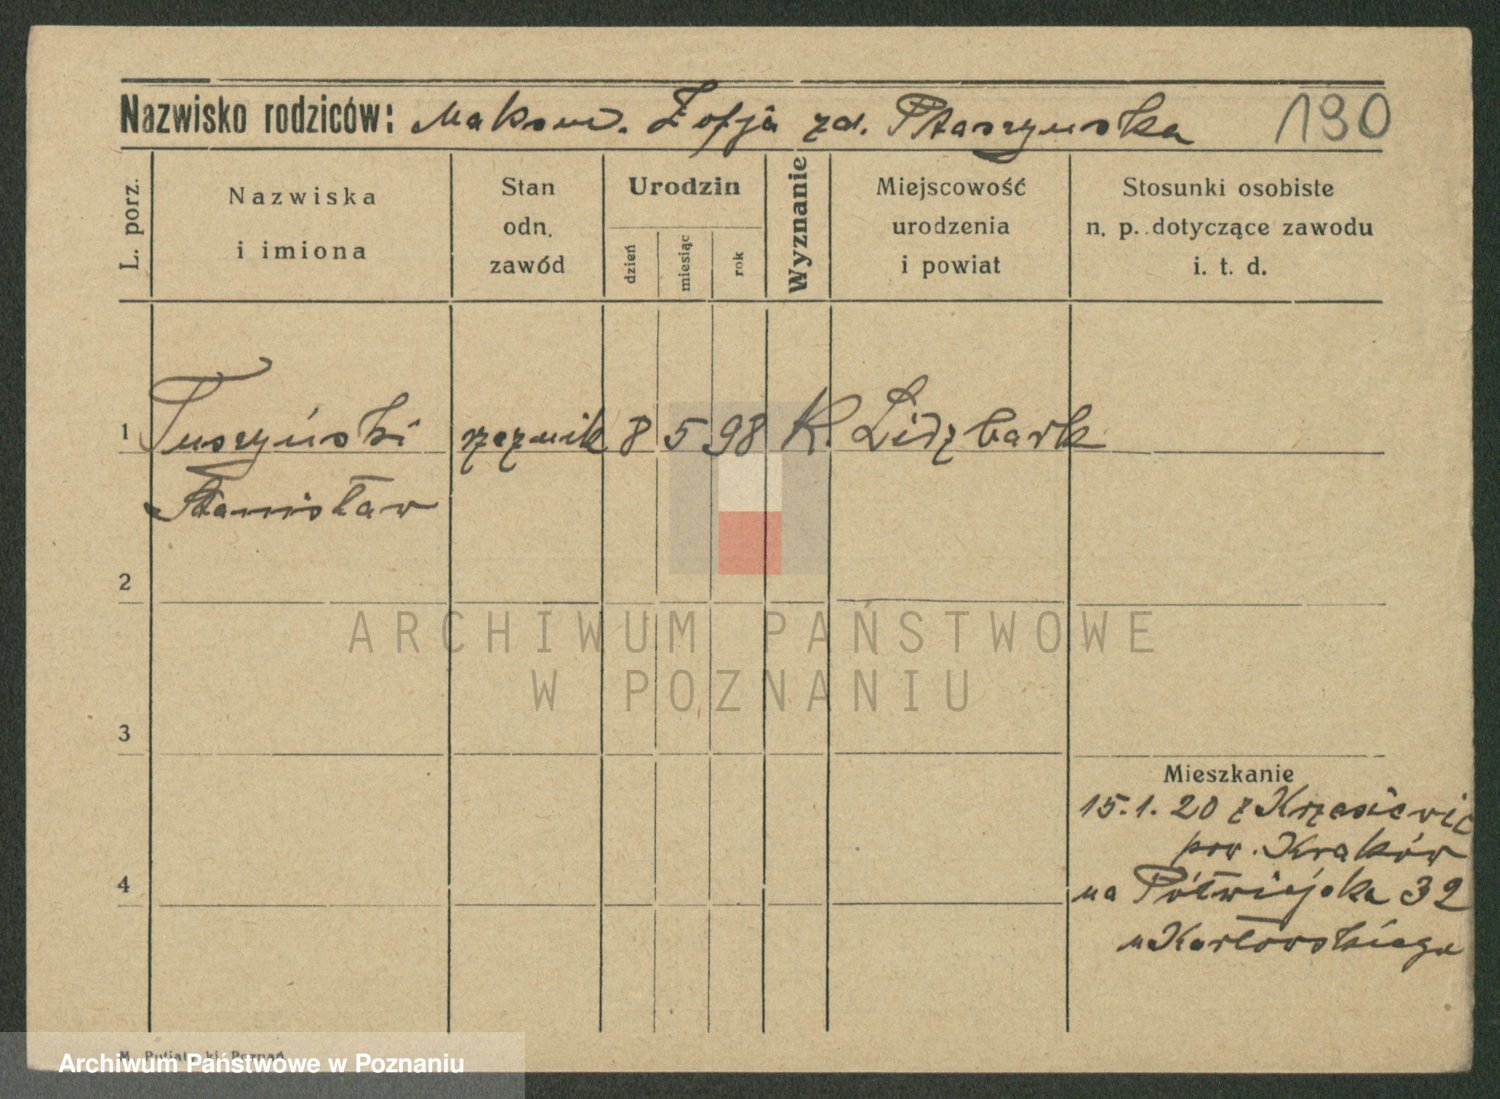 Nazwisko rodziców: Maksym. Zofja zd. Ptaszyńska 190
L. porz.
Nazwiska
i imiona
Stan
odn.
zawód
Urodzin
dzień
miesiąc
rok
Wyznanie
Miejscowość
urodzenia
i powiat
Stosunki osobiste
n. p. dotyczące zawodu
i. t. d.
1 Tuszyński rzeźnik 8 5 98 K. Lidzbark
Stanisław
2
3
4
Mieszkanie
15.1.20 z
pow. Kraków
na Półwiejska 32
u Karłowskiego
ARCHIWUM PAŃSTWOWE
W POZNANIU
Archiwum Państwowe w Poznaniu